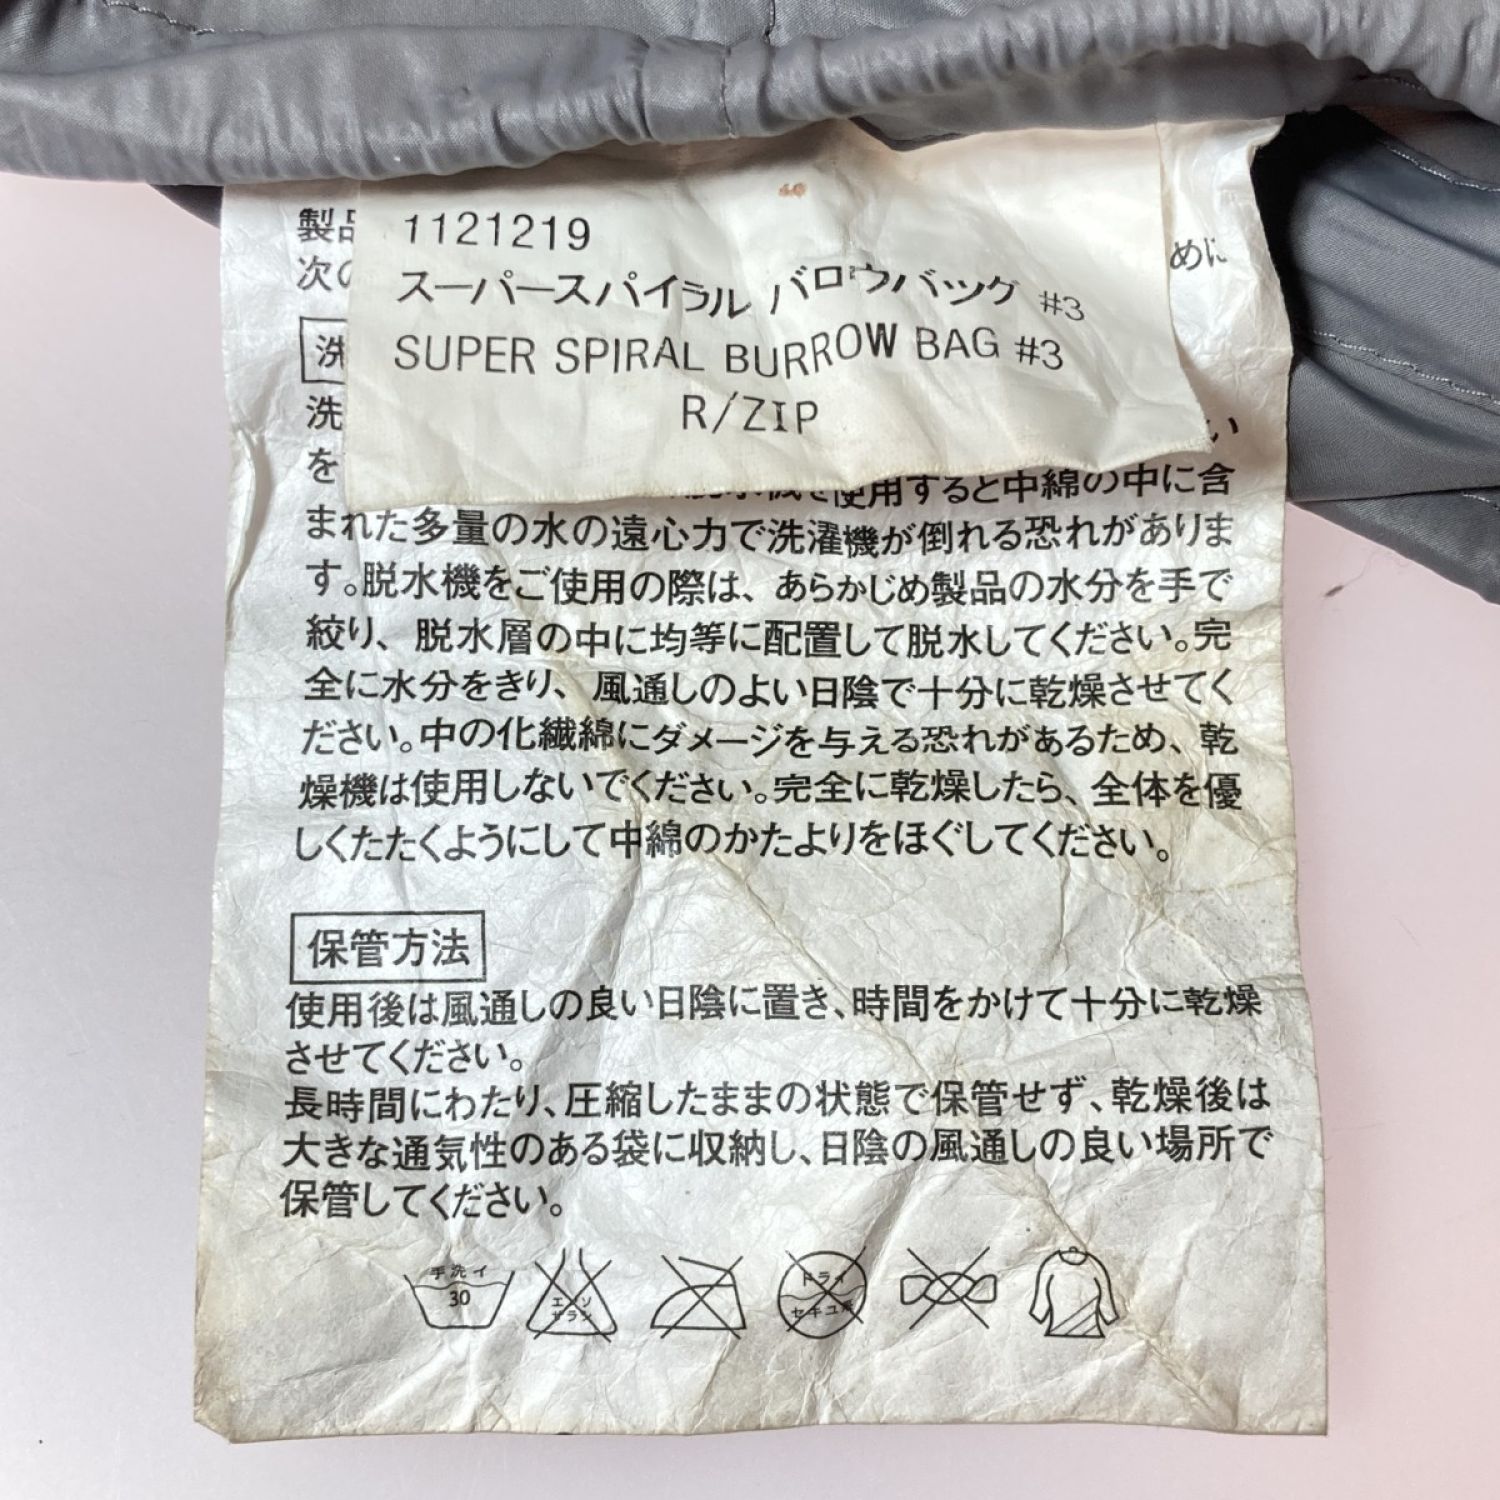 1121219
スーパースパイラル バロウバッグ #3
SUPER SPIRAL BURROW BAG #3
R/ZIP
製品
次の
めに
洗
洗
い
を
を使用すると中綿の中に含
まれた多量の水の遠心力で洗濯機が倒れる恐れがありま
す。脱水機をご使用の際は、あらかじめ製品の水分を手で
絞り、脱水層の中に均等に配置して脱水してください。完
全に水分をきり、風通しのよい日陰で十分に乾燥させてく
ださい。中の化繊綿にダメージを与える恐れがあるため、乾
燥機は使用しないでください。完全に乾燥したら、全体を優
しくたたくようにして中綿のかたよりをほぐしてください。
保管方法
使用後は風通しの良い日陰に置き、時間をかけて十分に乾燥
させてください。
長時間にわたり、圧縮したままの状態で保管せず、乾燥後は
大きな通気性のある袋に収納し、日陰の風通しの良い場所で
保管してください。
手洗イ
30
エンソ
サラシ
ドライ
セキユ系